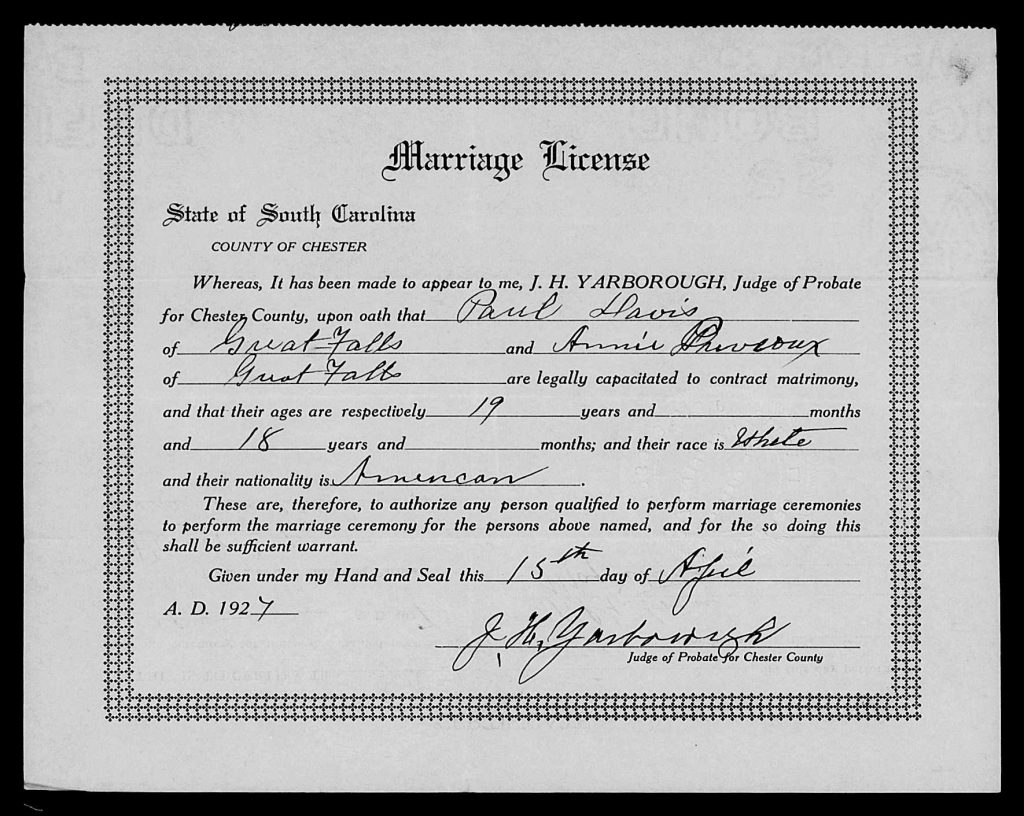 Marriage License
State of South Carolina
COUNTY OF CHESTER
Whereas, It has been made to appear to me, J. H. YARBOROUGH, Judge of Probate
for Chester County, upon oath that Paul Davis
of Great Falls and Annie
of Great Falls are legally capacitated to contract matrimony,
and that their ages are respectively 19 years and months
and 18 years and months; and their race is White
and their nationality is American.
These are, therefore, to authorize any person qualified to perform marriage ceremonies
to perform the marriage ceremony for the persons above named, and for the so doing this
shall be sufficient warrant.
Given under my Hand and Seal this 15th day of April
A. D. 1927
J. H. Yarborough
Judge of Probate for Chester County